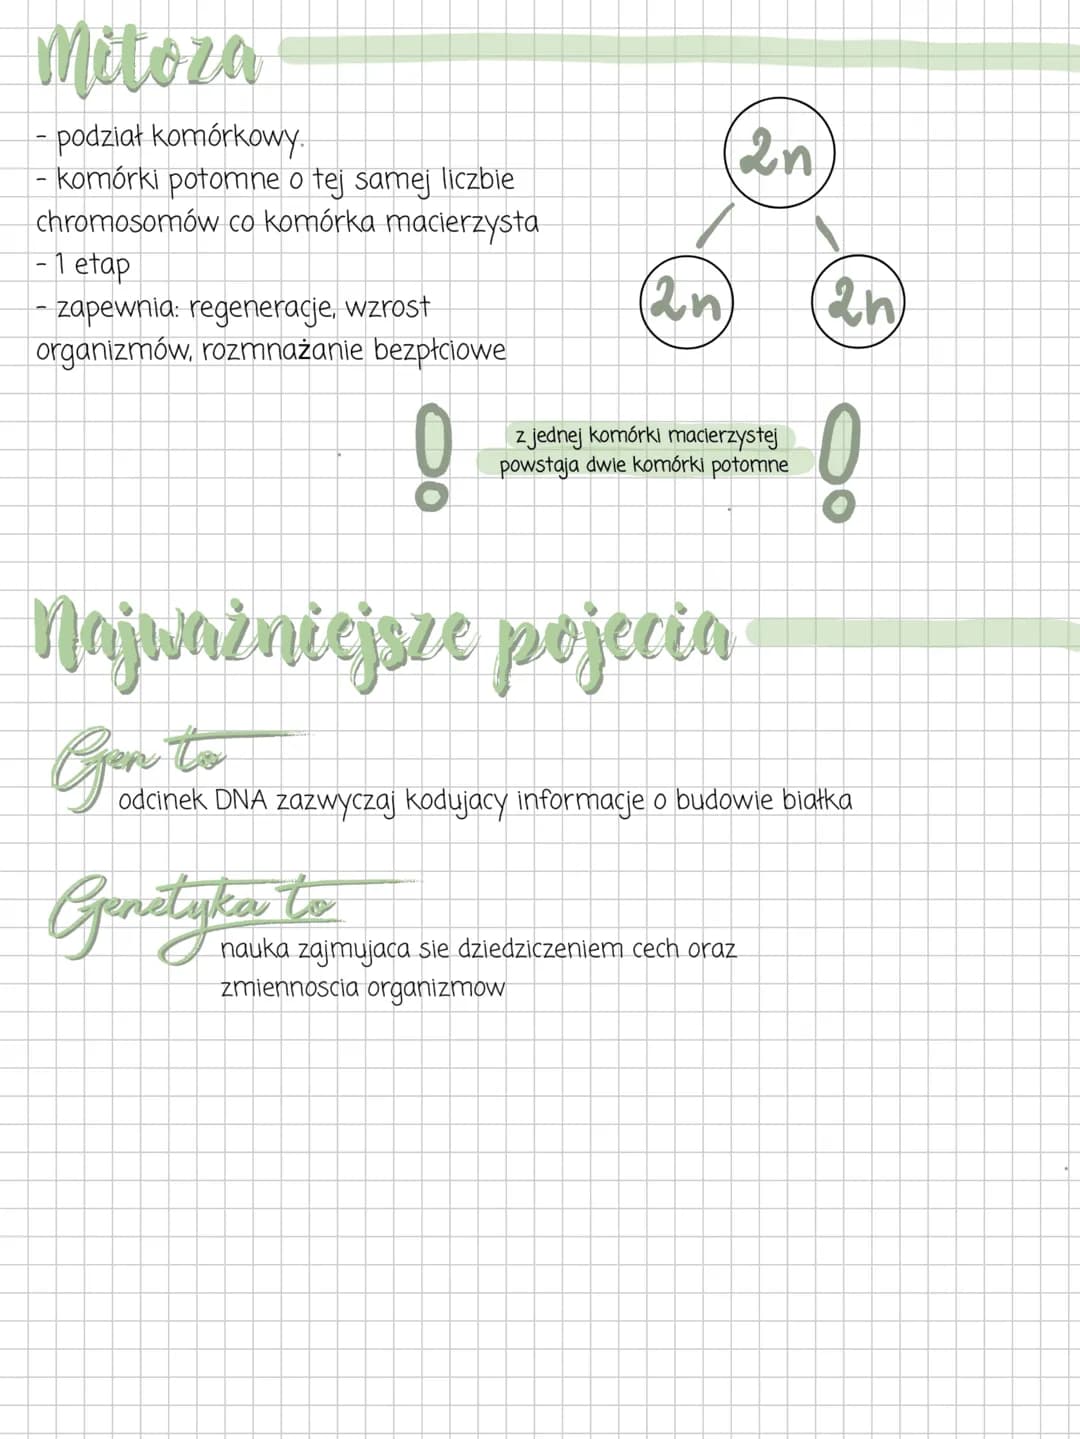 Mitoza
- podział komórkowy.
- komórki potomne o tej samej liczbie
chromosomów co komórka macierzysta
- 1 etap
- zapewnia: regeneracje, wzrost
organizmów, rozmnażanie bezpłciowe
2n
2n
2n
z jednej komórki macierzystej
powstaja dwie komórki potomne
Najważniejsze pojecia
Gen to
odcinek DNA zazwyczaj kodujacy informacje o budowie białka
Genetyka to
nauka zajmujaca sie dziedziczeniem cech oraz
zmiennoscia organizmow